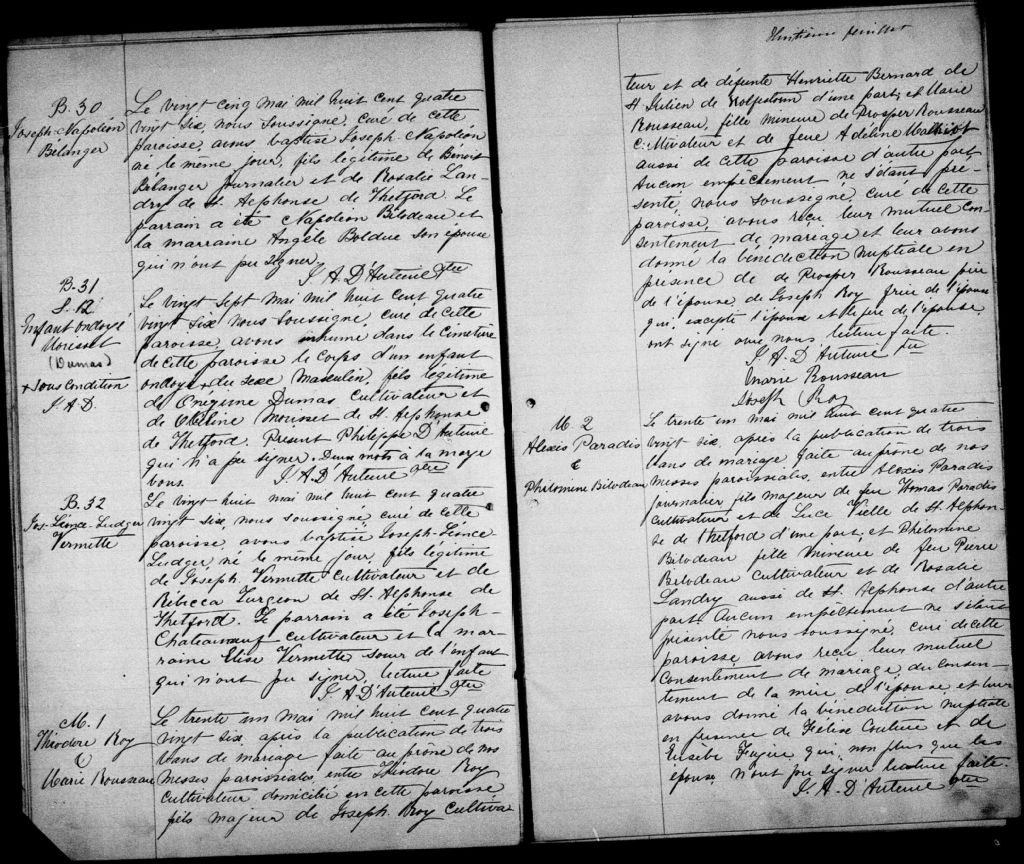 B. 30
Joseph-Napoléon
Bélanger
Le vingt cinq mai mil huit cent quatre
vingt six, nous soussigné, curé de cette
paroisse, avons baptisé Joseph Napoléon
né le même jour, fils légitime de Benoit
Bélanger journalier et de Rosalie Lan-
dry de St. Alphonse de Thetford. Le
parrain a été Napoléon Bilodeau et
la marraine Angèle Bolduc son épouse
qui n'ont pu signer.
J. A. D'Auteuil Ptre
B. 31
S. 12
Enfant ondoyé
Mousset
(Dumas)
+ sous condition
J. A. D.
Le vingt sept mai mil huit cent quatre
vingt six nous soussigné, curé de cette
paroisse, avons inhumé dans le cimetière
de cette paroisse le corps d'un enfant
ondoyé + du sexe masculin, fils légitime
de Onézime Dumas cultivateur et
de Mousset de St. Alphonse
de Thetford. Présent Philippe D'Auteuil
qui n'a pu signer. Deux mots à la marge
bons.
J. A. D'Auteuil Ptre
B. 32
Jos-Léonce-Ludger
Vermette
Le vingt huit mai mil huit cent quatre
vingt six, nous soussigné, curé de cette
paroisse, avons baptisé Joseph-Léonce-
Ludger, né le même jour, fils légitime
de Joseph Vermette cultivateur et de
Rébecca Turgeon de St. Alphonse de
Thetford. Le parrain a été Joseph-
Chateauneuf cultivateur et la mar-
raine Elise Vermette, soeur de l'enfant
qui n'ont pu signer, lecture faite
J. A. D'Auteuil Ptre
M. 1
Théodore Roy
&
Marie Rousseau
Le trente un mai mil huit cent quatre
vingt six, après la publication de trois
bans de mariage faite au prône de nos
messes paroissiales, entre Théodore Roy
cultivateur domicilié en cette paroisse,
fils majeur de Joseph Roy cultiva
Huitième feuillet
teur et de défunte Henriette Bernard de
St Julien de Wolfestown d'une part, et Marie
Rousseau, fille mineure de Prosper Rousseau
cultivateur et de feue Adeline
aussi de cette paroisse d'autre part,
Aucun empêchement ne s'étant pré-
senté nous soussigné, curé de cette
paroisse, avons reçu leur mutuel con-
sentement de mariage et leur avons
donné la bénédiction nuptiale en
présence de de Prosper Rousseau père
de l'épouse, de Joseph Roy frère de l'époux
qui, excepté l'époux et le père de l'épouse,
ont signé avec nous, lecture faite.
J. A. D'Auteuil Ptre
Marie Rousseau
Joseph Roy
M. 2
Alexis Paradis
&
Philomine Bilodeau
Le trente un mai mil huit cent quatre
vingt six, après la publication de trois
bans de mariage faite au prône de nos
messes paroissiales, entre Alexis Paradis
journalier, fils majeur de feu Thomas Paradis
cultivateur et de Luce Vielle de St. Alphon-
se de Thetford d'une part, et Philomine
Bilodeau fille mineure de feu Pierre
Bilodeau cultivateur et de Rosalie
Landry aussi de St. Alphonse d'autre
part. Aucun empêchement ne s'étant
présenté nous soussigné, curé de cette
paroisse, avons reçu leur mutuel
consentement de mariage, du consen-
tement de la mère de l'épouse, et leur
avons donné la bénédiction nuptiale
en présence de Couture et de
qui, non plus que les
époux, n'ont pu signer lecture faite.
J. A. D'Auteuil Ptre